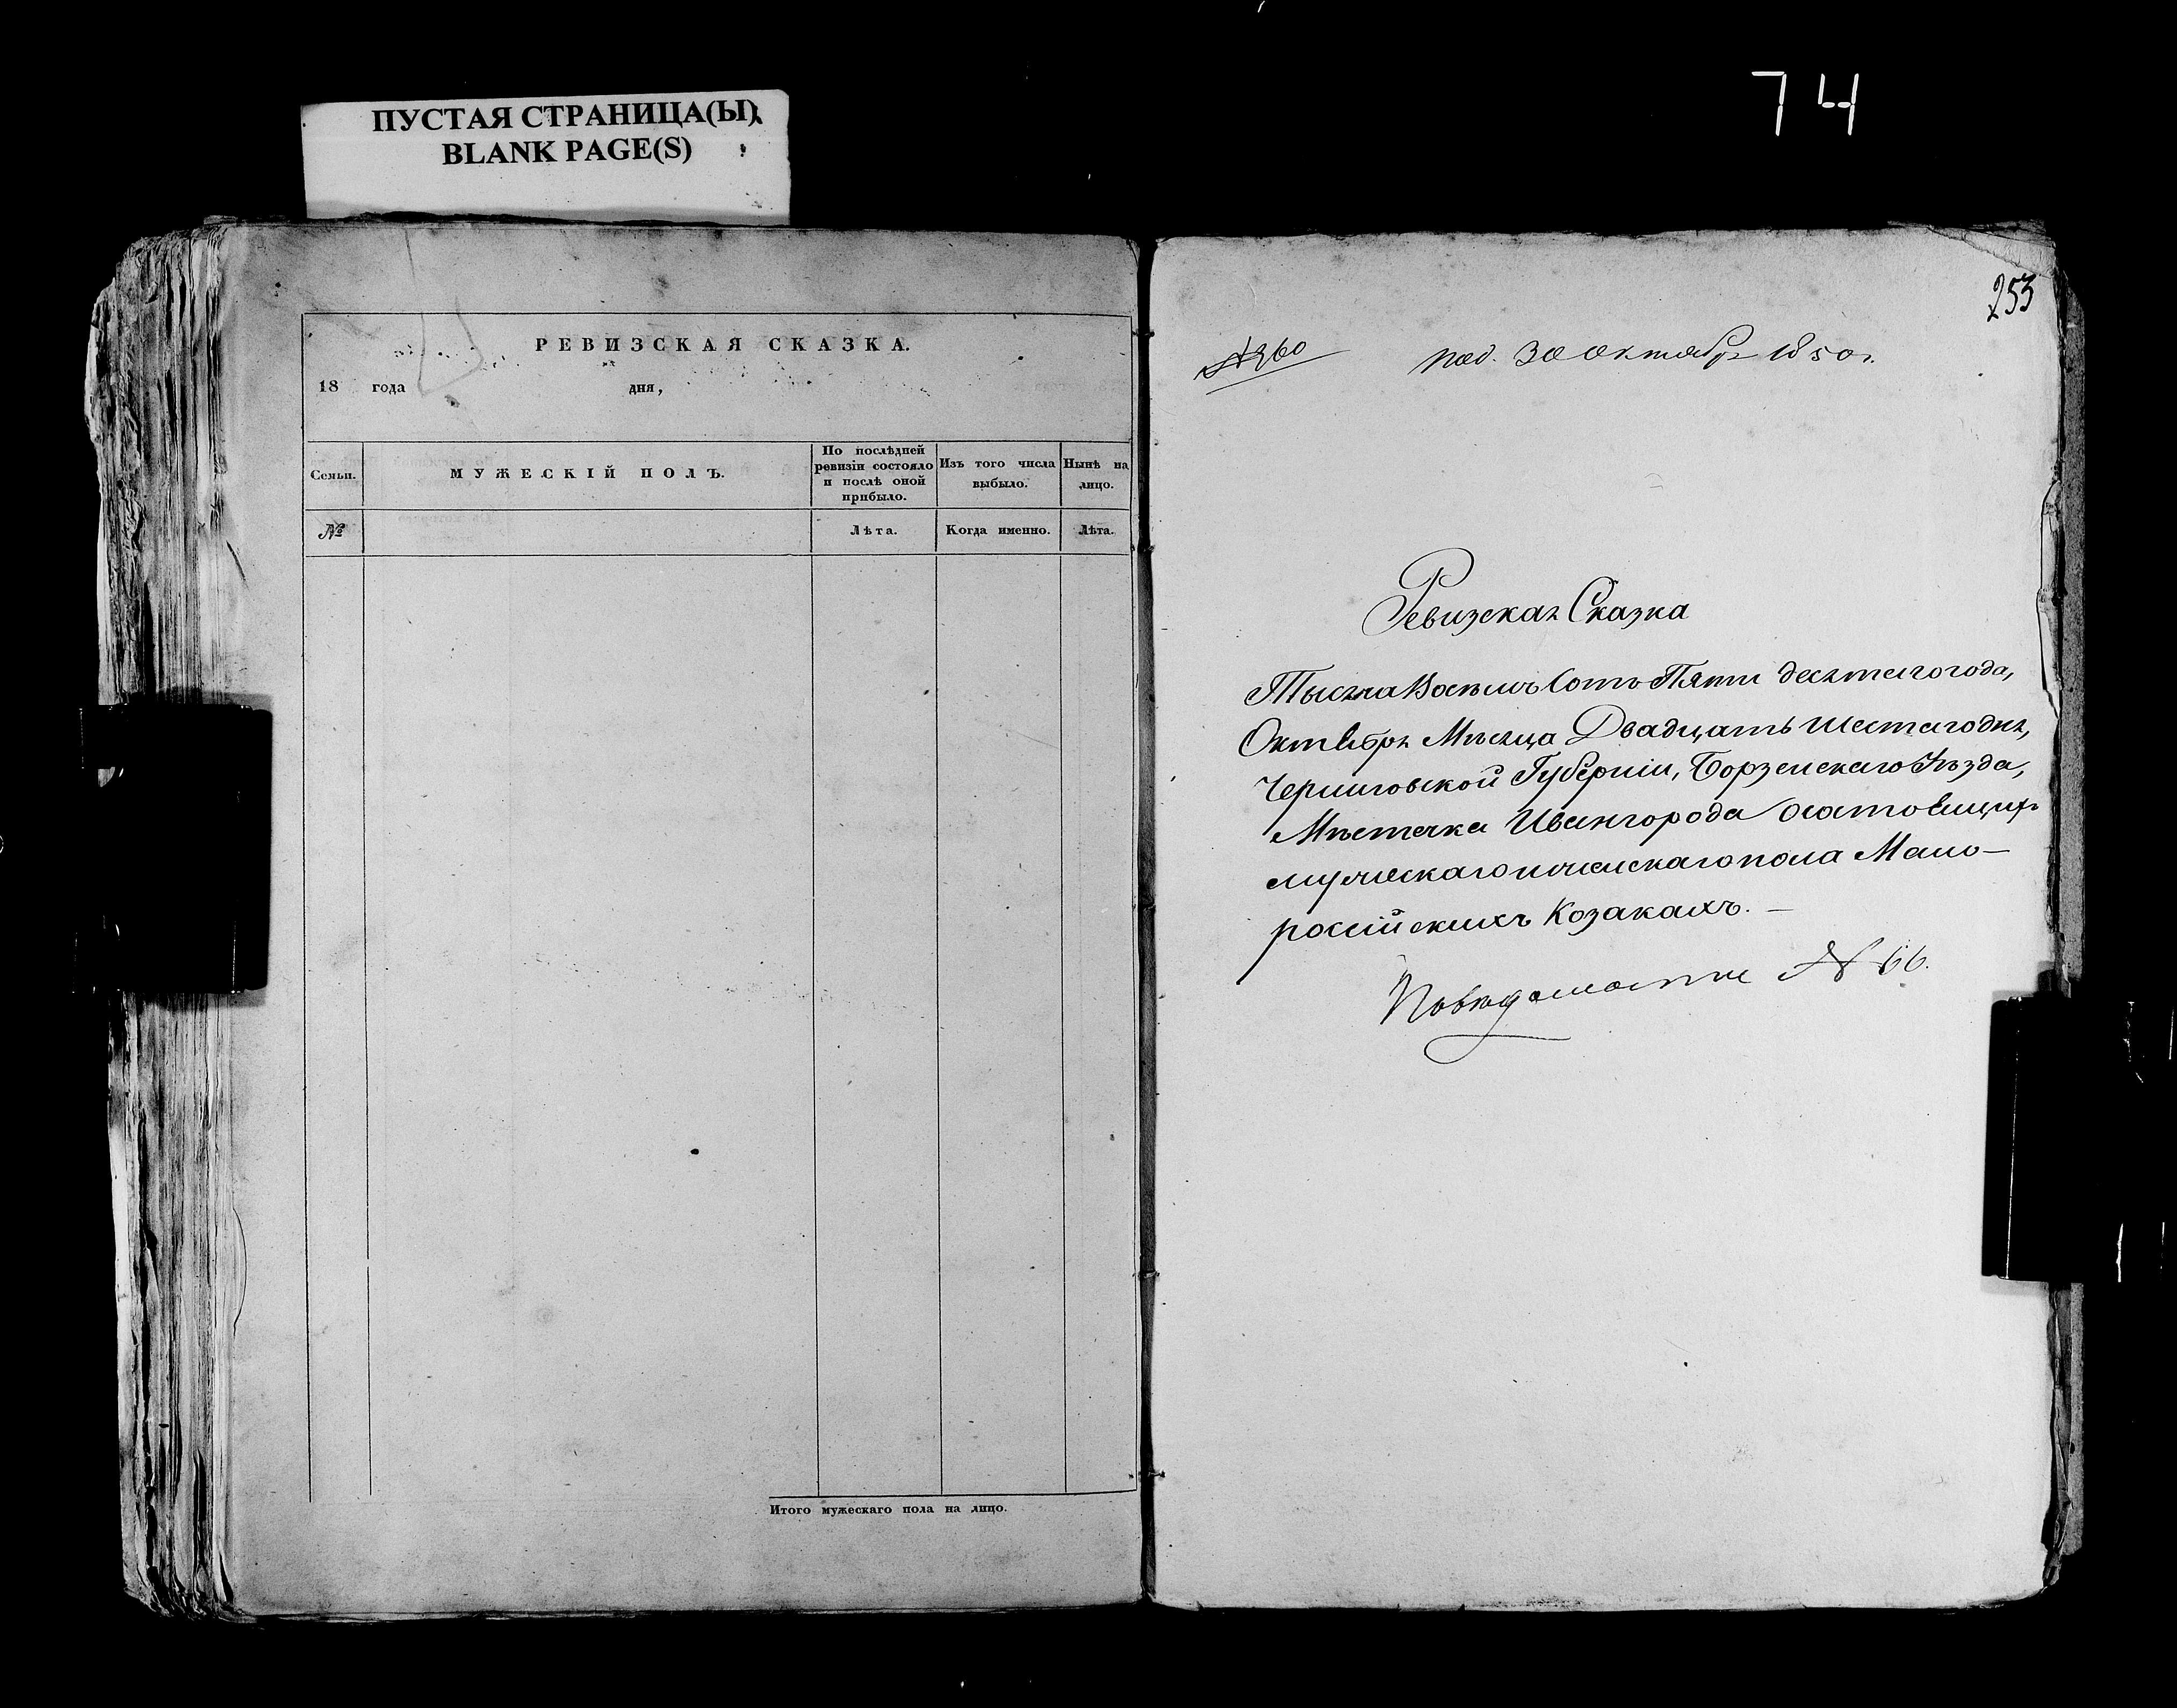 74
ПУСТАЯ СТРАНИЦА(Ы)
BLANK PAGE(S)
РЕВИЗСКАЯ СКАЗКА.
18 года дня,
Семьи.
МУЖЕСКІЙ ПОЛЪ.
По послѣдней ревизіи состояло и послѣ оной прибыло.
Изъ того числа выбыло.
Нынѣ на лицо.
№
Лѣта.
Когда именно.
Лѣта.
Итого мужескаго пола на лицо.
253
№360 под. 30 октября 1850 г.
Ревизская Сказка
Тысяча Восемь Сотъ Пяти десятаго года,
Октября Мѣсяца Двадцать шестаго дня,
Черниговской Губерніи, Борзенскаго Уѣзда,
Мѣстечка Ивангорода о состоящихъ
мужескаго и женскаго пола Мало-
россійскихъ Козакахъ. —
По вѣдомости № 66.